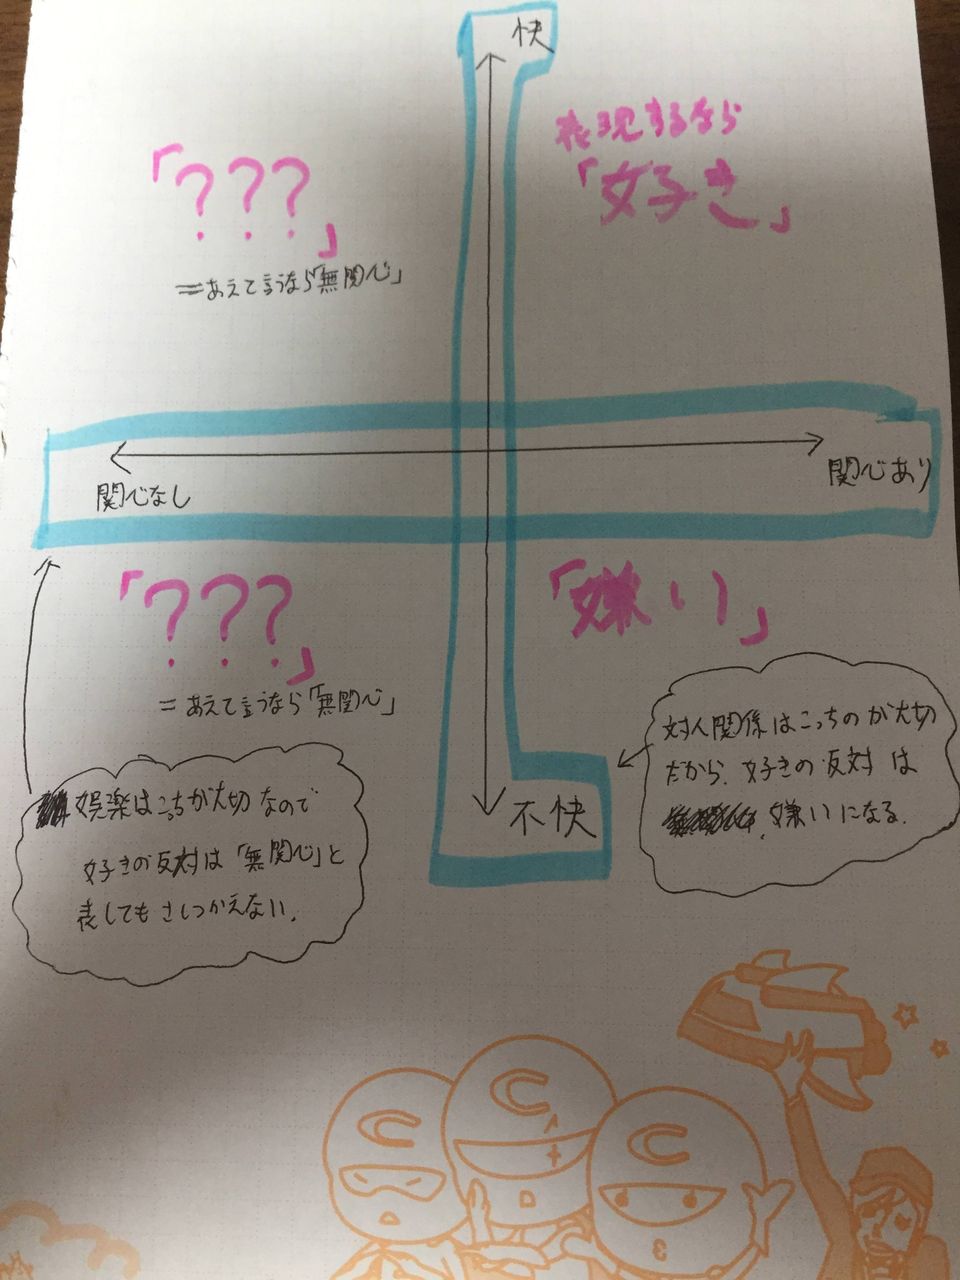 快
表現するなら
「好き」
「???」
=あえて言うなら「無関心」
関心なし
関心あり
「???」
=あえて言うなら「無関心」
「嫌い」
不快
対人関係はこっちのが大切
だから、好きの反対は
嫌いになる。
娯楽はこっちが大切なので
好きの反対は「無関心」と
表してもさしつかえない。
C
C
C